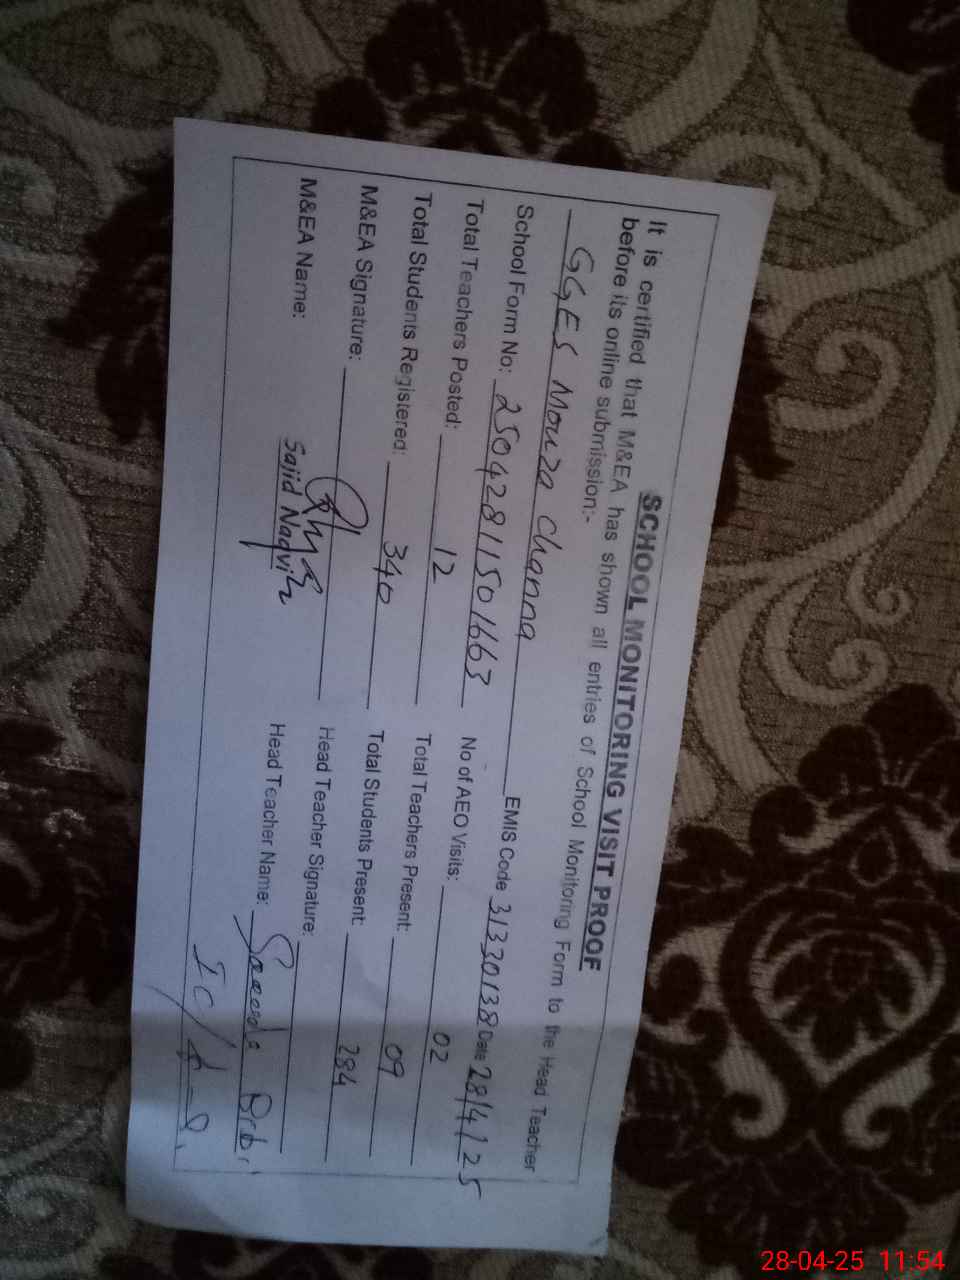 SCHOOL MONITORING VISIT PROOF
It is certified that M&EA has shown all entries of School Monitoring Form to the Head Teacher
before its online submission:-
GGES Mouza Channa EMIS Code 31330138 Date 28/4/25
School Form No: 25042811501663 No of AEO Visits: 02
Total Teachers Posted: 12 Total Teachers Present: 09
Total Students Registered: 340 Total Students Present: 284
M&EA Signature: Head Teacher Signature:
M&EA Name: Sajid Naqvi Head Teacher Name: Saeeda Bibi
28-04-25 11:54